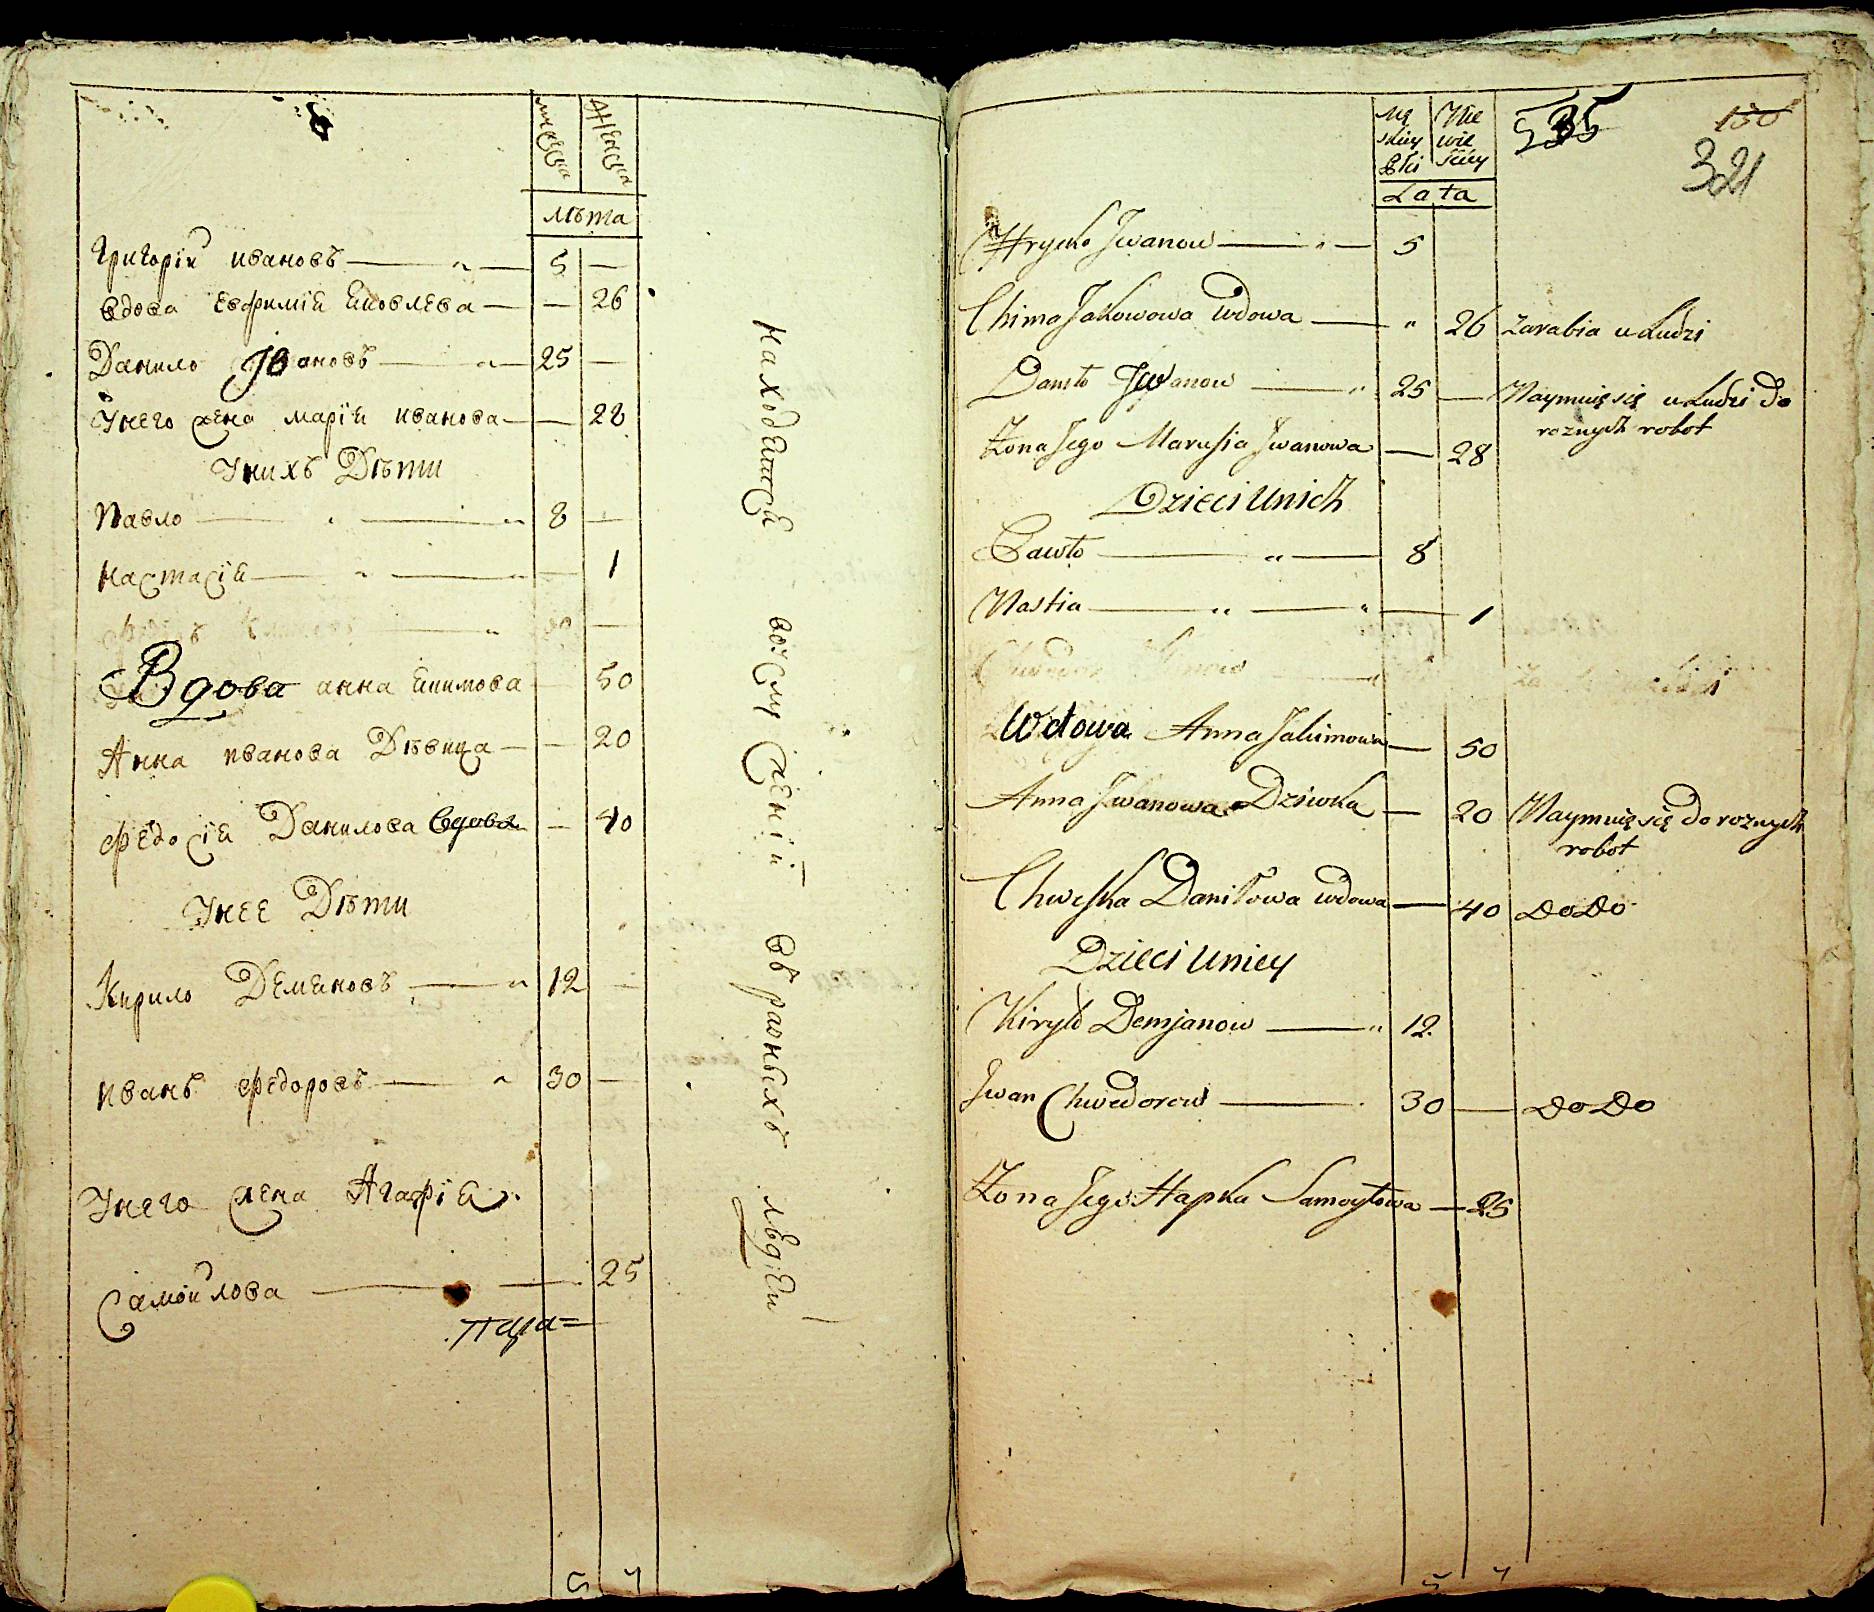 мужеска
женска
лѣта
Григорій ивановъ 5
вдова Евфимія Яковлева 26
Данило Ивановъ 25
Унего жена марія иванова 28
Унихъ Дѣти
Павло 8
Настасія 1
Вдова анна якимова 50
Анна иванова Дѣвица 20
Федосія Данилова вдова 40
Унее Дѣти
Кирило Демяновъ 12
иванъ федоровъ 30
Унего жена Агафія
Самойлова 25
находятся вослуженіи въ разныхъ людей
5 7
Mę skiey płci
Nie wie sciey
535
150
321
Lata
Hrycko Jwanow 5
Chima Jakowowa wdowa 26 zarabia u Ludzi
Daniło Jwanow 25 Naymuię się u Ludzi do
roznych robot
Żona Jego Marusia Jwanowa 28
Dzieci Unich
Pawło 8
Nastia 1
Wdowa Anna Jakimowa 50
Anna Jwanowa Dziwka 20 Naymuię się do roznych
robot
Chweśka Daniłowa wdowa 40 Do Do
Dzieci Uniey
Kiryło Demjanow 12
Jwan Chwedorow 30 Do Do
Żona Jego Hapka Samoyłowa 25
5 7